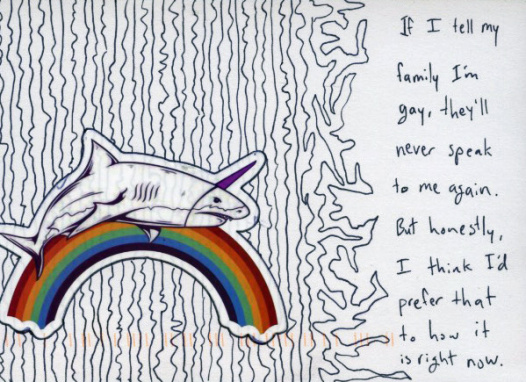 If I tell my
family I'm
gay, they'll
never speak
to me again.
But honestly,
I think I'd
prefer that
to how it
is right now.